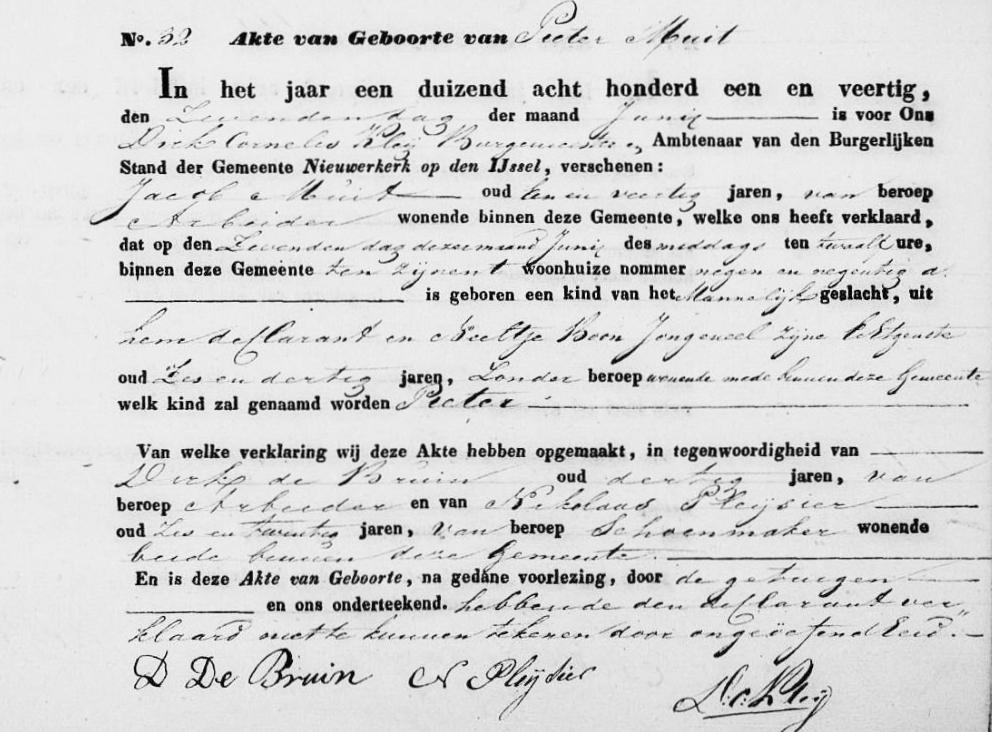 No. 32 Akte van Geboorte van Pieter Muit
In het jaar een duizend acht honderd een en veertig,
den Zevenden dag der maand Junij is voor Ons
Dirk Cornelis Kleij Burgemeester, Ambtenaar van den Burgerlijken
Stand der Gemeente Nieuwerkerk op den IJssel, verschenen:
Jacob Muit oud een en veertig jaren, van beroep
Arbeider wonende binnen deze Gemeente, welke ons heeft verklaard,
dat op den Zevenden dag dezer maand Junij des middags ten twaalf ure,
binnen deze Gemeente ten zijnent woonhuize nommer negen en negentig a.
is geboren een kind van het Mannelijk geslacht, uit
hem declarant en Neeltje Boon Jongeneel zijne Echtgenote
oud Zes en dertig jaren, Zonder beroep wonende mede binnen deze Gemeente
welk kind zal genaamd worden Pieter
Van welke verklaring wij deze Akte hebben opgemaakt, in tegenwoordigheid van
Dirk de Bruin oud dertig jaren, van
beroep Arbeider en van Nikolaas Pleijsier
oud Zes en twintig jaren, van beroep Schoenmaker wonende
beide binnen deze Gemeente.
En is deze Akte van Geboorte, na gedane voorlezing, door de getuigen
en ons onderteekend. hebbende den declarant ver„
klaard niet te kunnen tekenen door ongeoefendheid.
D De Bruin N Pleijsier
D: C: Kleij